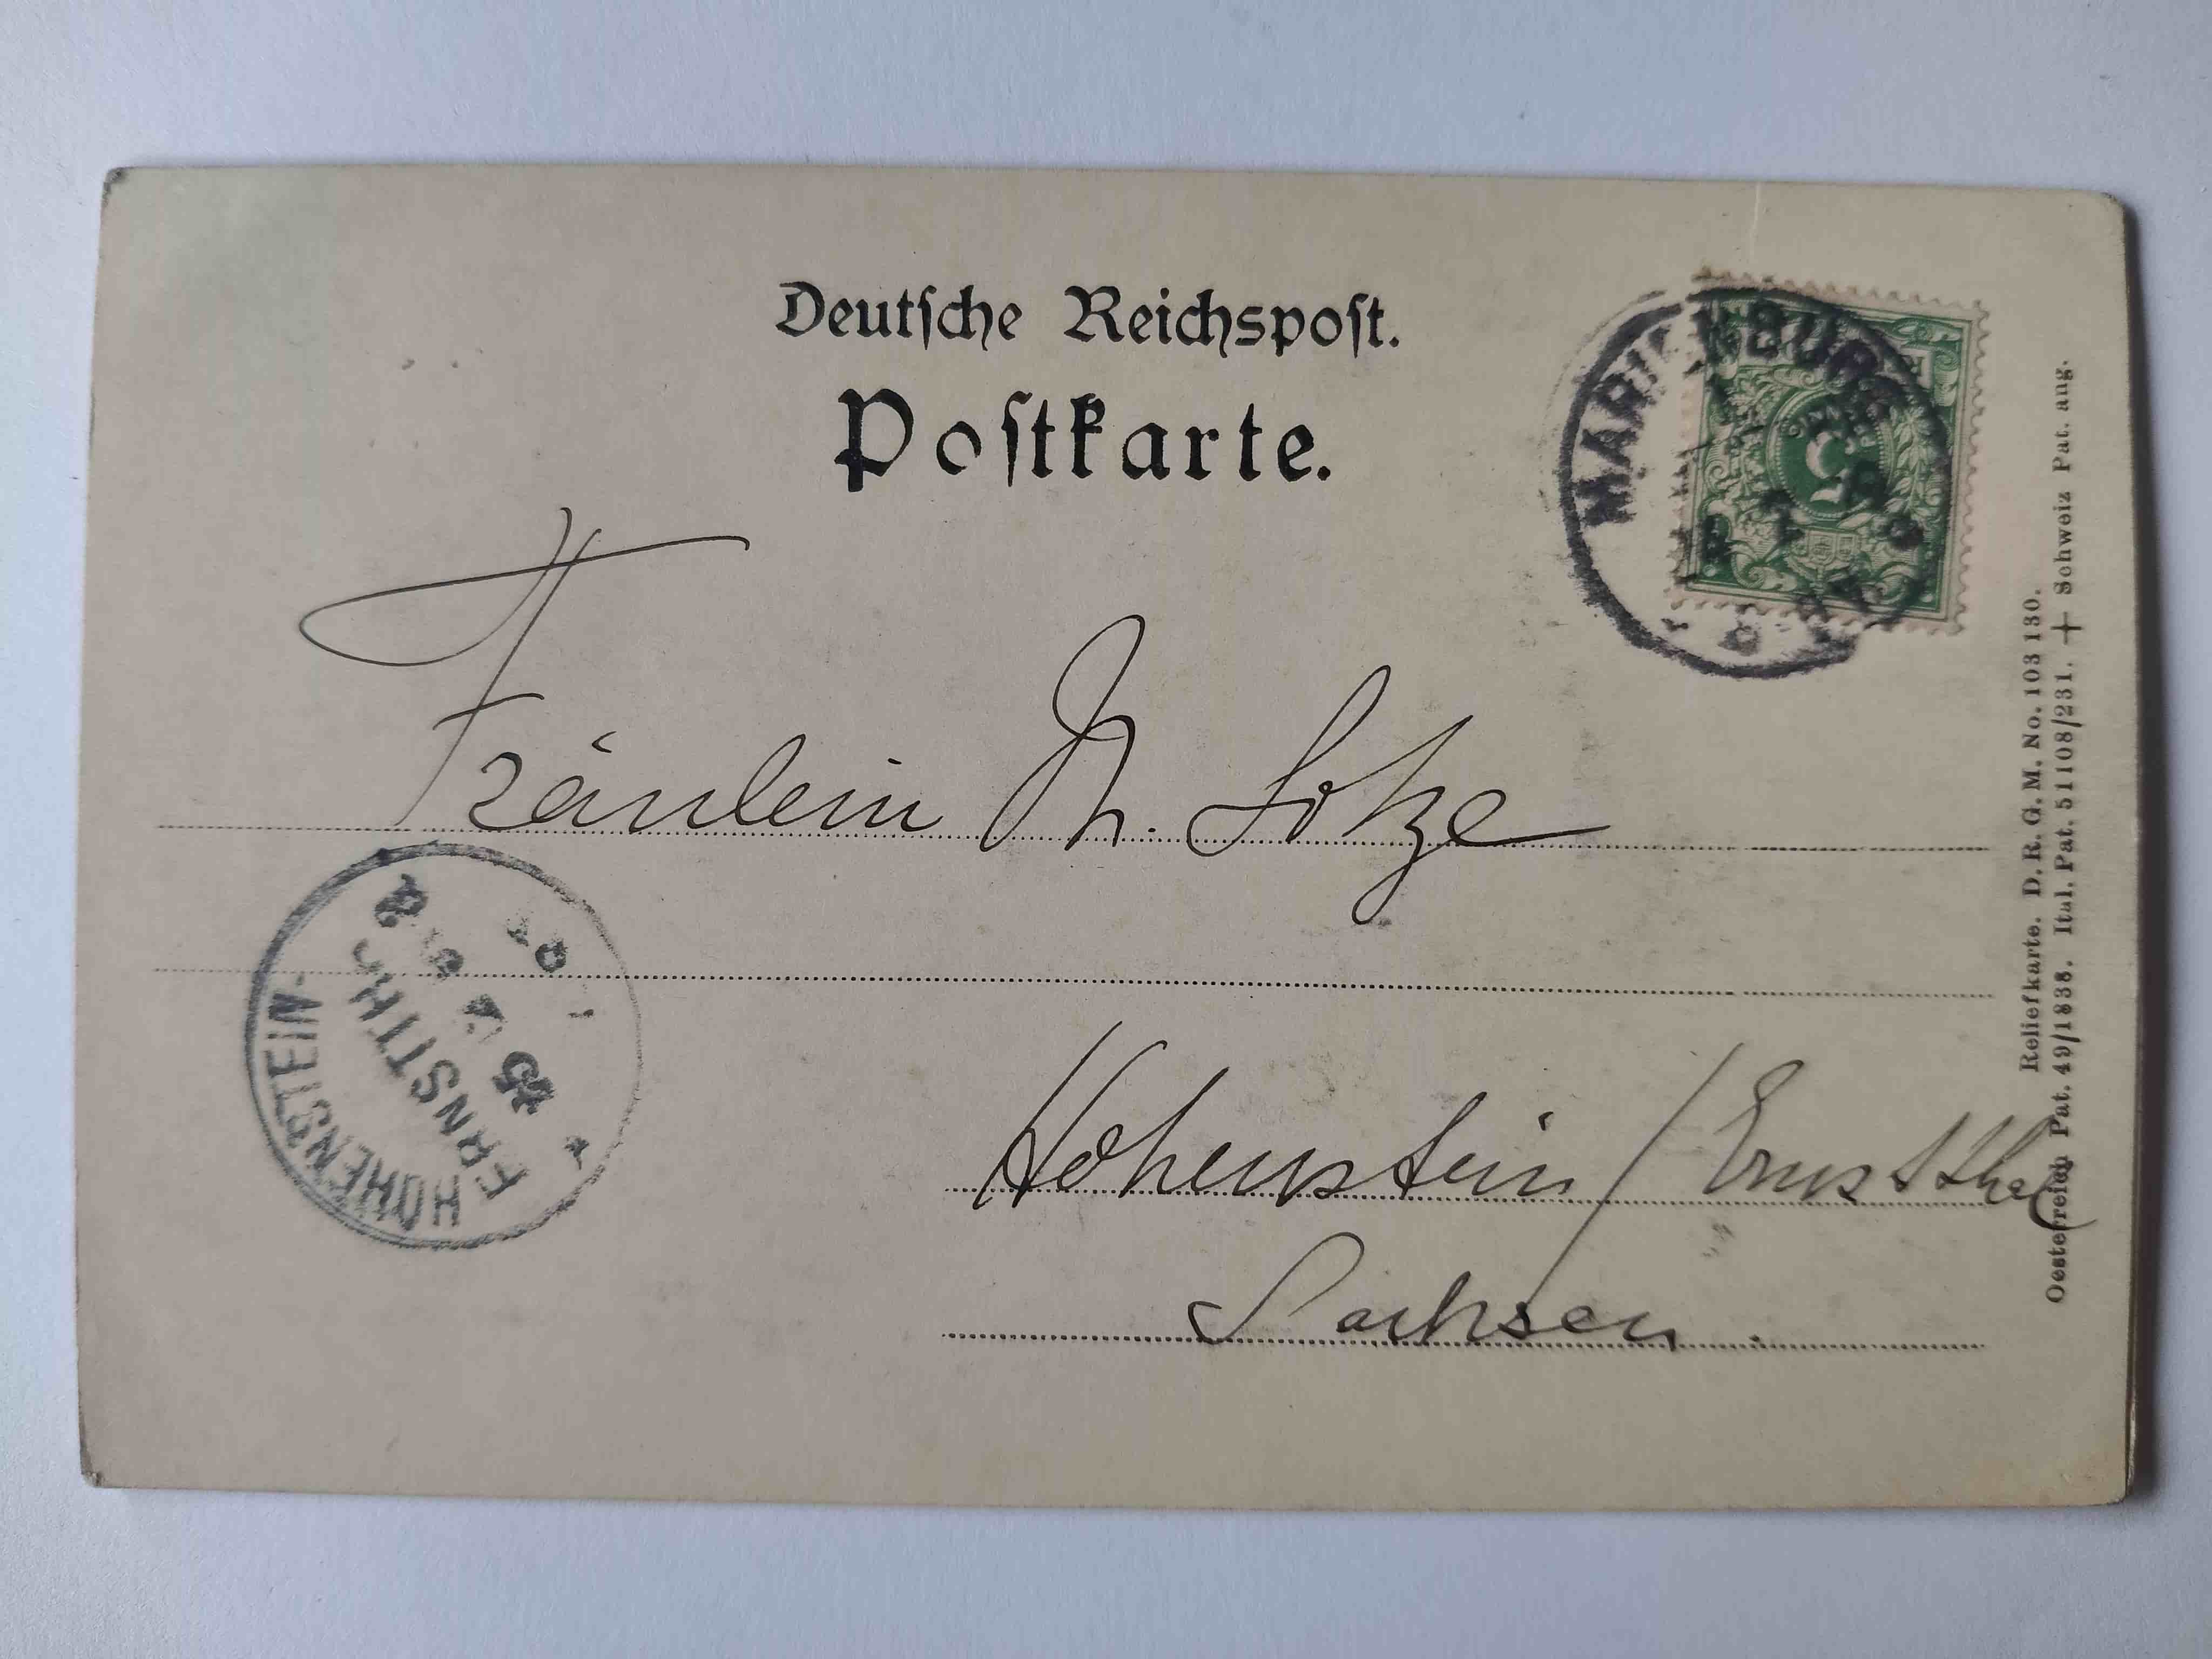 Deutsche Reichspost.
Postkarte.
MARIENBURG
Fräulein M. Lotze
HOHENSTEIN-
ERNSTTH
Hohenstein / Ernstthal
Sachsen.
Reliefkarte. D. R. G. M. No. 103 130.
Oesterreich Pat. 49/1838. Ital. Pat. 51108/231. + Schweiz Pat. ang.